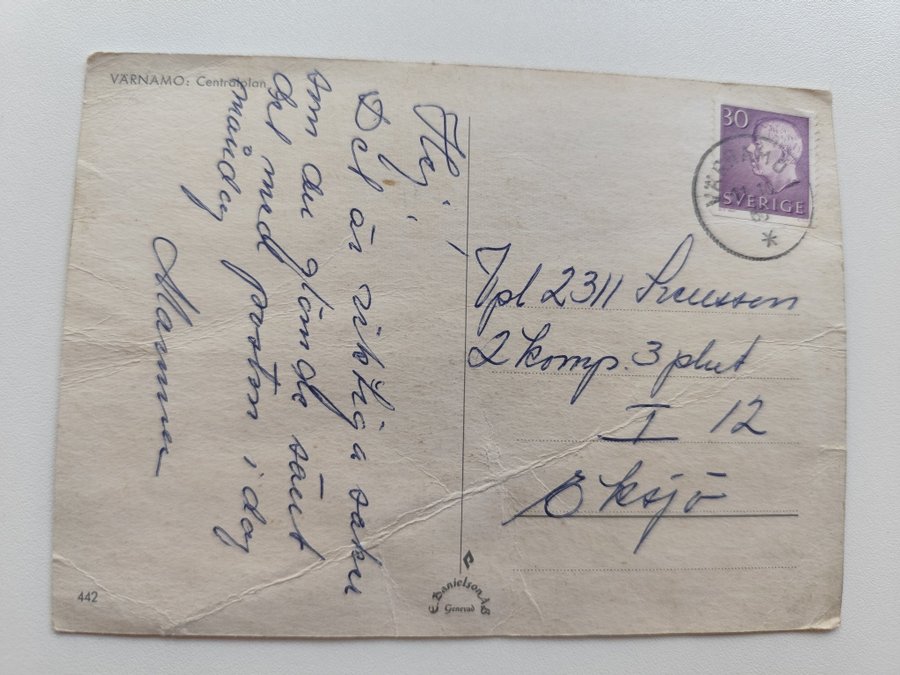 VÄRNAMO: Centralplan
Hej!
Det är viktiga saker
som du glömde sänt
det med posten i dag
måndag
Mamma
30
SVERIGE
VÄRNAMO
Vpl 2311 Svensson
2 komp. 3 plut
I 12
Eksjö
442
C. Danielson A.B
Genevad